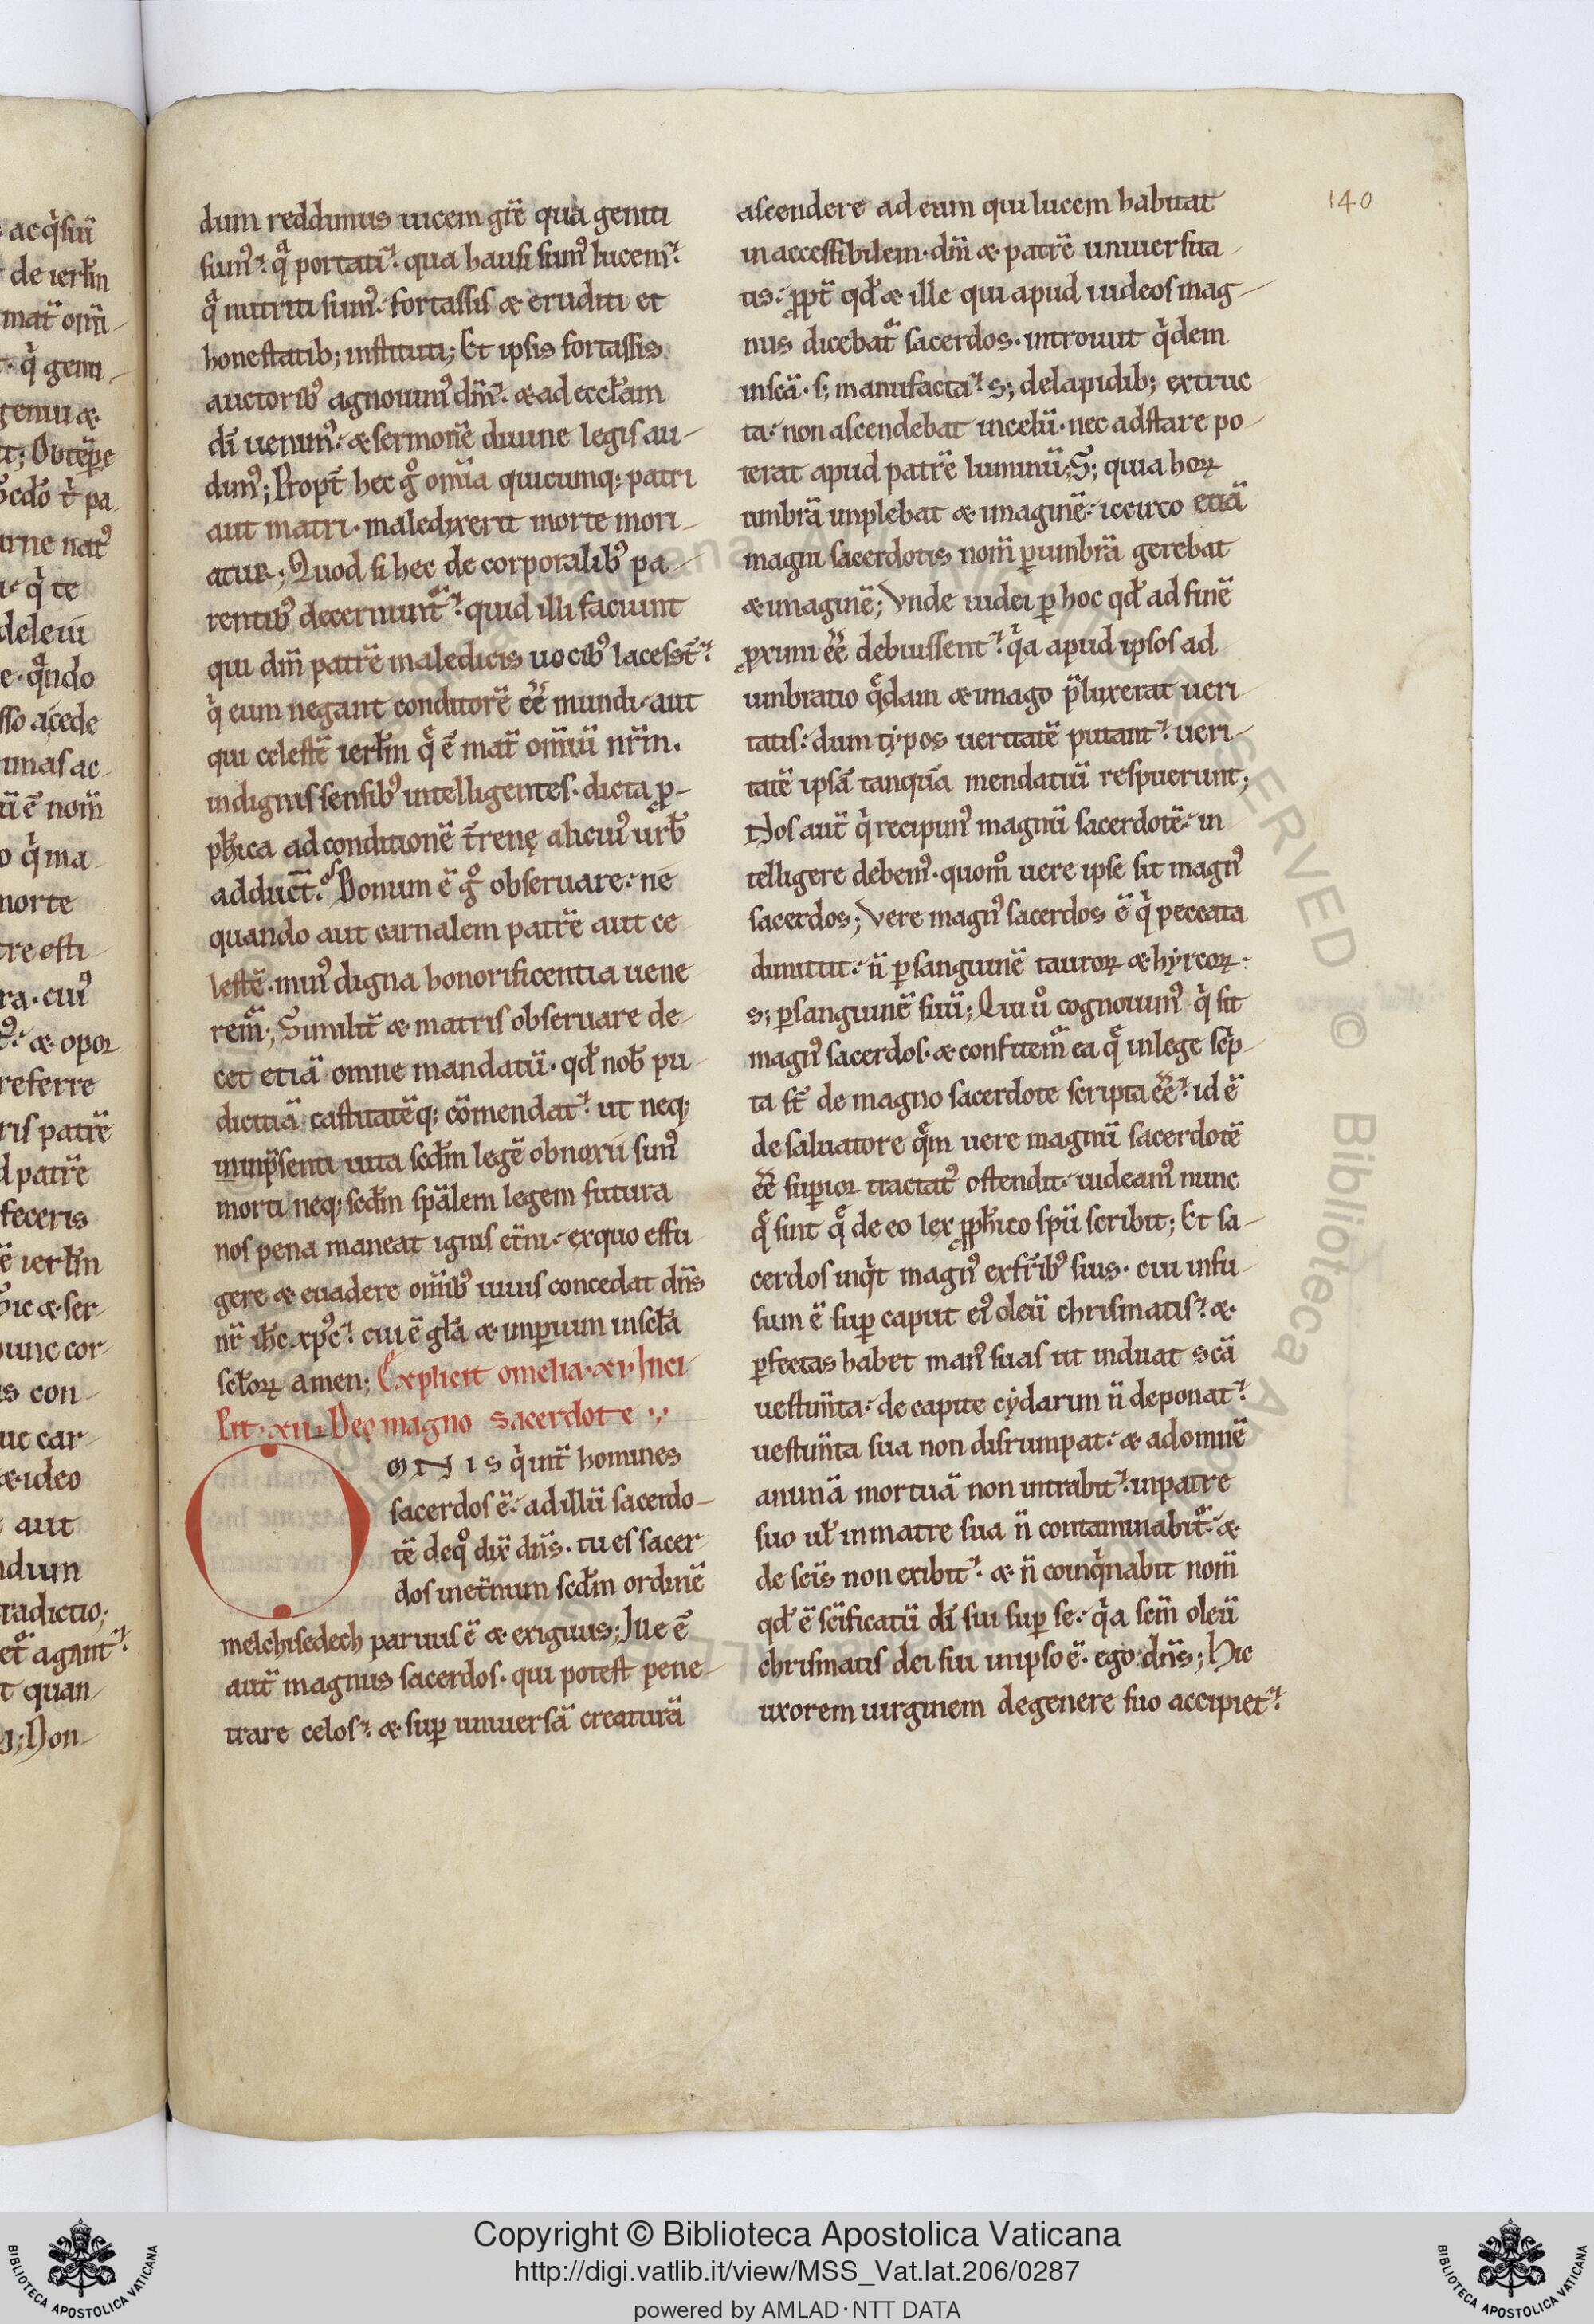 dum reddimus uicem gr̃e qua geniti
sumꝰ. qͣ portati. qua hausi sumꝰ lucem.
qͣ nutriti sumꝰ. fortassis æ eruditi et
honestatib; instituti; Et ipsis fortassis
auctoribꝰ agnouimꝰ dm̃. æ ad eccłam
dĩ uenimꝰ. æ sermonẽ diuine legis au-
dimꝰ; Propt̃ hec gͦ om̃ia quicunq; patri
aut matri. maledixerit morte mori-
atur; Quod si hec de corporalibꝰ pa-
rentibꝰ decernunt᷑. quid illi faciunt
qui dm̃ patrẽ maledicis uocibꝰ lacesst̃.
qͥ eum negant conditorẽ eẽ mundi. aut
qui celestẽ ierłm qͤ ẽ mat̃ om̃iũ nr̃m.
indignis sensibꝰ intelligentes. dicta ꝓ-
ph̃ica ad conditionẽ t̃renę alicuiꝰ urb̃
adduct̃. Bonum ẽ gͦ obseruare. ne
quando aut carnalem patrẽ aut ce
lestẽ. minꝰ digna honorificentia uene
rem᷑; Similit̃ æ matris obseruare de-
cet etiã omne mandatũ. qđ nob̃ pu-
dicitiã castitatẽq; cõmendat. ut neq;
in inp̃senti uita scđm legẽ obnoxii simꝰ
morti neq; scđm sp̃alem legem futura
nos pena maneat ignis et̃ni. exquo effu
gere æ euadere om̃ibꝰ uiuis concedat dñs
nr̃ ih̃c xp̃c. cui ẽ gła æ inꝑium inscła
scłoꝝ amen; Explicit omelia. xi. Inci
pit. xii. Deo magno sacerdote
OMNIS qͥ int̃ homines
sacerdos ẽ. ad illũ sacerdo-
tẽ deqͦ dix̃ dñs. tu es sacer-
dos inet̃num scđm ordinẽ
melchisedech paruus ẽ æ exiguus; Ille ẽ
aut̃ magnus sacerdos. qui potest pene-
trare celos. æ suꝑ uniuersã creaturã
ascendere ad eum qui lucem habitat
inaccessibilem. dm̃ æ patrẽ uniuersita-
tis. ꝓpt̃ qđ æ ille qui apud iudeos mag-
nus dicebat᷑ sacerdos. introiuit qͥdem
inscã. s; manufacta. s; delapidib; extruc
ta. non ascendebat incelũ. nec adstare po-
terat apud patrẽ luminũ; S; quia hoꝝ
umbrã implebat æ imaginẽ. iccirco etiã
magni sacerdotis nom̃ ꝑumbrã gerebat
æ imaginẽ; Vnde iudei ꝑ hoc qđ ad finẽ
ꝓximi eẽ debuissent. qͥa apud ipsos ad
umbratio qͤdam æ imago p̃luxerat ueri-
tatis. dum typos ueritatẽ putant. ueri-
tatẽ ipsã tanquã mendatiũ respuerunt;
Nos aut̃ qͥ recipimꝰ magnũ sacerdotẽ. in
telligere debemꝰ. quom̊ uere ipse sit magnꝰ
sacerdos; Vere magnꝰ sacerdos ẽ qͥ peccata
dimittit. ñ ꝑ sanguinẽ tauroꝝ æ hyrcoꝝ.
s; ꝑsanguinẽ suũ; Qui uͦ cognouimꝰ qͥ sit
magnꝰ sacerdos. æ confitem᷑ ea qͤ inlege scͥp-
ta st̃ de magno sacerdote scripta eẽ. id ẽ
de saluatore qͤm uere magnũ sacerdotẽ
eẽ suꝑior tractatꝰ ostendit. uideamꝰ nunc
qͤ sint qͤ de eo lex ꝓph̃ico spũ scribit; Et sa-
cerdos inqͥt magnꝰ exfr̃ibꝰ suis. cui infu-
sum ẽ suꝑ caput eiꝰ oleũ chrismatis. æ
ꝑfectas habet manꝰ suas ut induat scã
uestim̃ta. de capite cydarim ñ deponat.
uestim̃ta sua non disrumpat. æ adomnẽ
animã mortuã non intrabit. inpatre
suo uł inmatre sua ñ contaminabit᷑. æ
de scĩs non exibit. æ ñ coinqͥnabit nom̃
qđ ẽ scĩficatũ dĩ sui suꝑ se. qͥa scm̃ oleũ
chrismatis dei sui inipso ẽ. ego dñs; Hic
uxorem uirginem degenere suo accipiet.
140
Copyright © Biblioteca Apostolica Vaticana
http://digi.vatlib.it/view/MSS_Vat.lat.206/0287
powered by AMLAD·NTT DATA